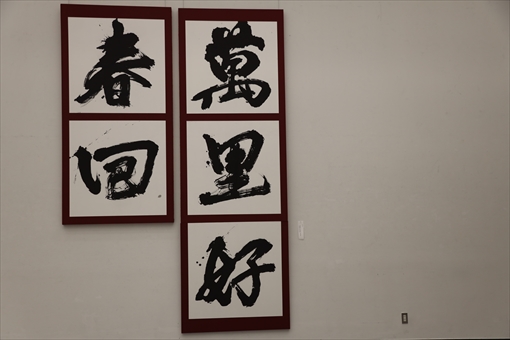 萬里好
春回